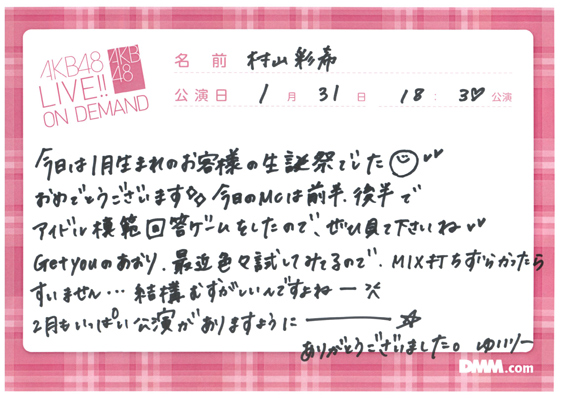 AKB48
LIVE!!
ON DEMAND
AKB
48
名前 村山彩希
公演日 1月 31日 18:30公演
今日は1月生まれのお客様の生誕祭でした
おめでとうございます 今日のMCは前半、後半で
アイドル模範回答ゲームをしたので、ぜひ見て下さいね
Get youのあおり、最近色々試してみてるので、MIX打ちずらかったら
すいません… 結構むずかしいんですよねー
2月もいっぱい公演がありますように
ありがとうございました。ゆいりー
DMM.com